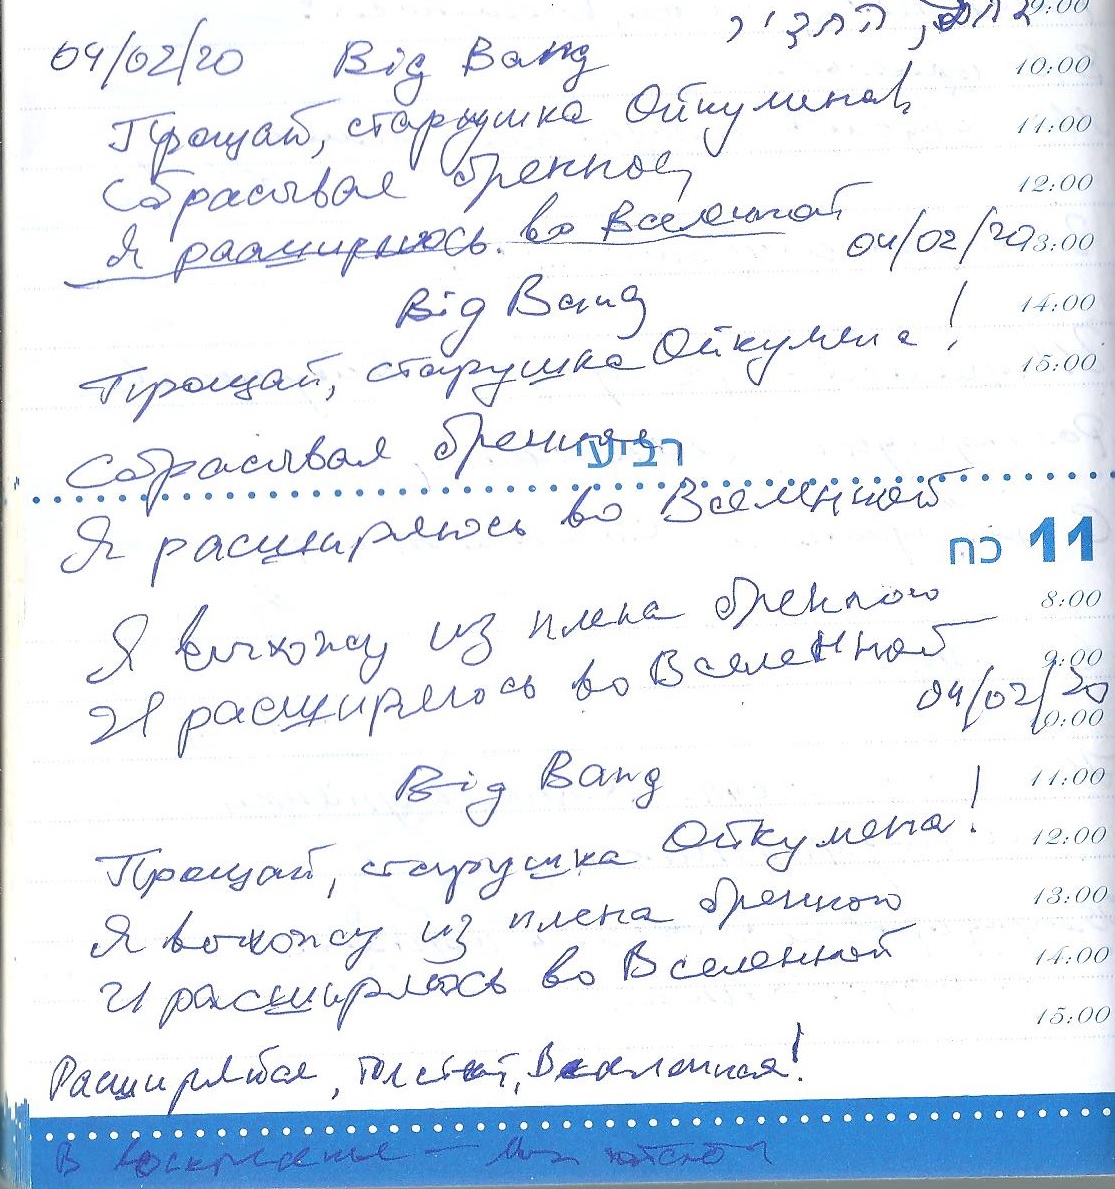 9:00
04/02/20 Big Bang
10:00
Прощай, старушка Ойкумена,
11:00
Сбрасывая бренное,
12:00
Я расширяюсь во Вселенной
04/02/20
13:00
Big Bang
14:00
Прощай, старушка Ойкумена!
15:00
Сбрасывая бренное
רביעי
Я расширяюсь во Вселенной
11 כח
Я выхожу из плена бренного
8:00
И расширяюсь во Вселенной
9:00
04/02/20
10:00
Big Bang
11:00
Прощай, старушка Ойкумена!
12:00
Я выхожу из плена бренного
13:00
И расширяюсь во Вселенной
14:00
15:00
Расширяйся, толстей, Вселенная!
В воскресенье —